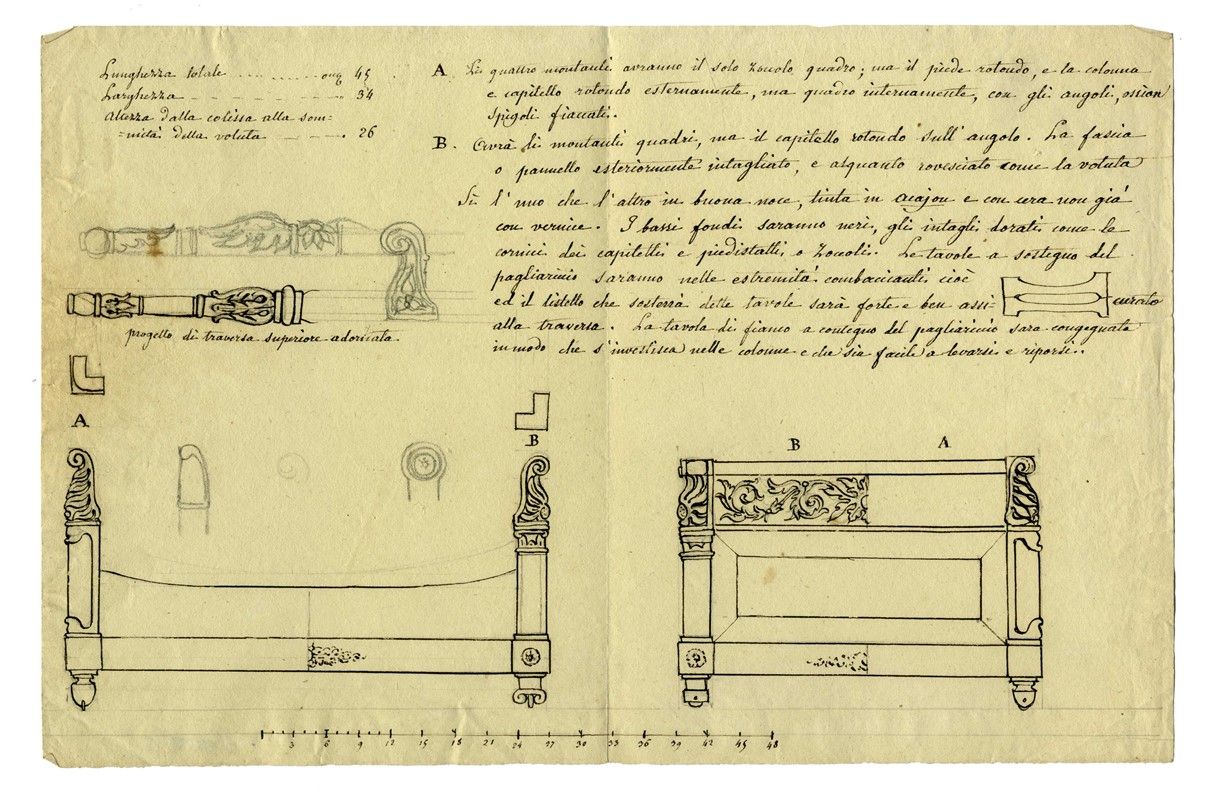 Lunghezza totale ........... onz 45
Larghezza - - - - - - - - - 34
Altezza dalla colissa alla som=
=mità della voluta - - - - . 26
A. Li quattro montanti avranno il solo zoccolo quadro; ma il piede rotondo, e la colonna
e capitello rotondo esternamente, ma quadro internamente, con gli angoli, ossian
spigoli fiaccati.
B. Avrà li montanti quadri, ma il capitello rotondo sull'angolo. La fascia
o pannello esteriormente intagliato, e alquanto rovesciato come la voluta
Sì l'uno che l'altro in buona noce, tinta in acajou e con cera non già
con vernice. I bassi fondi saranno neri, gli intagli dorati come le
cornici dei capitelli e piedistalli o zoccoli. Le tavole a sostegno del
pagliaricio saranno nelle estremità combaccianti cioè
ed il listello che sosterrà dette tavole sarà forte e ben assi curato
alla traversa. La tavola di fianco a contegno del pagliariccio sarà congegnata
in modo che s'investisca nelle colonne e che sia facile a levarsi e riporsi..
progetto di traversa superiore adornata
A
B
B A
3 6 9 12 15 18 21 24 27 30 33 36 39 42 45 48